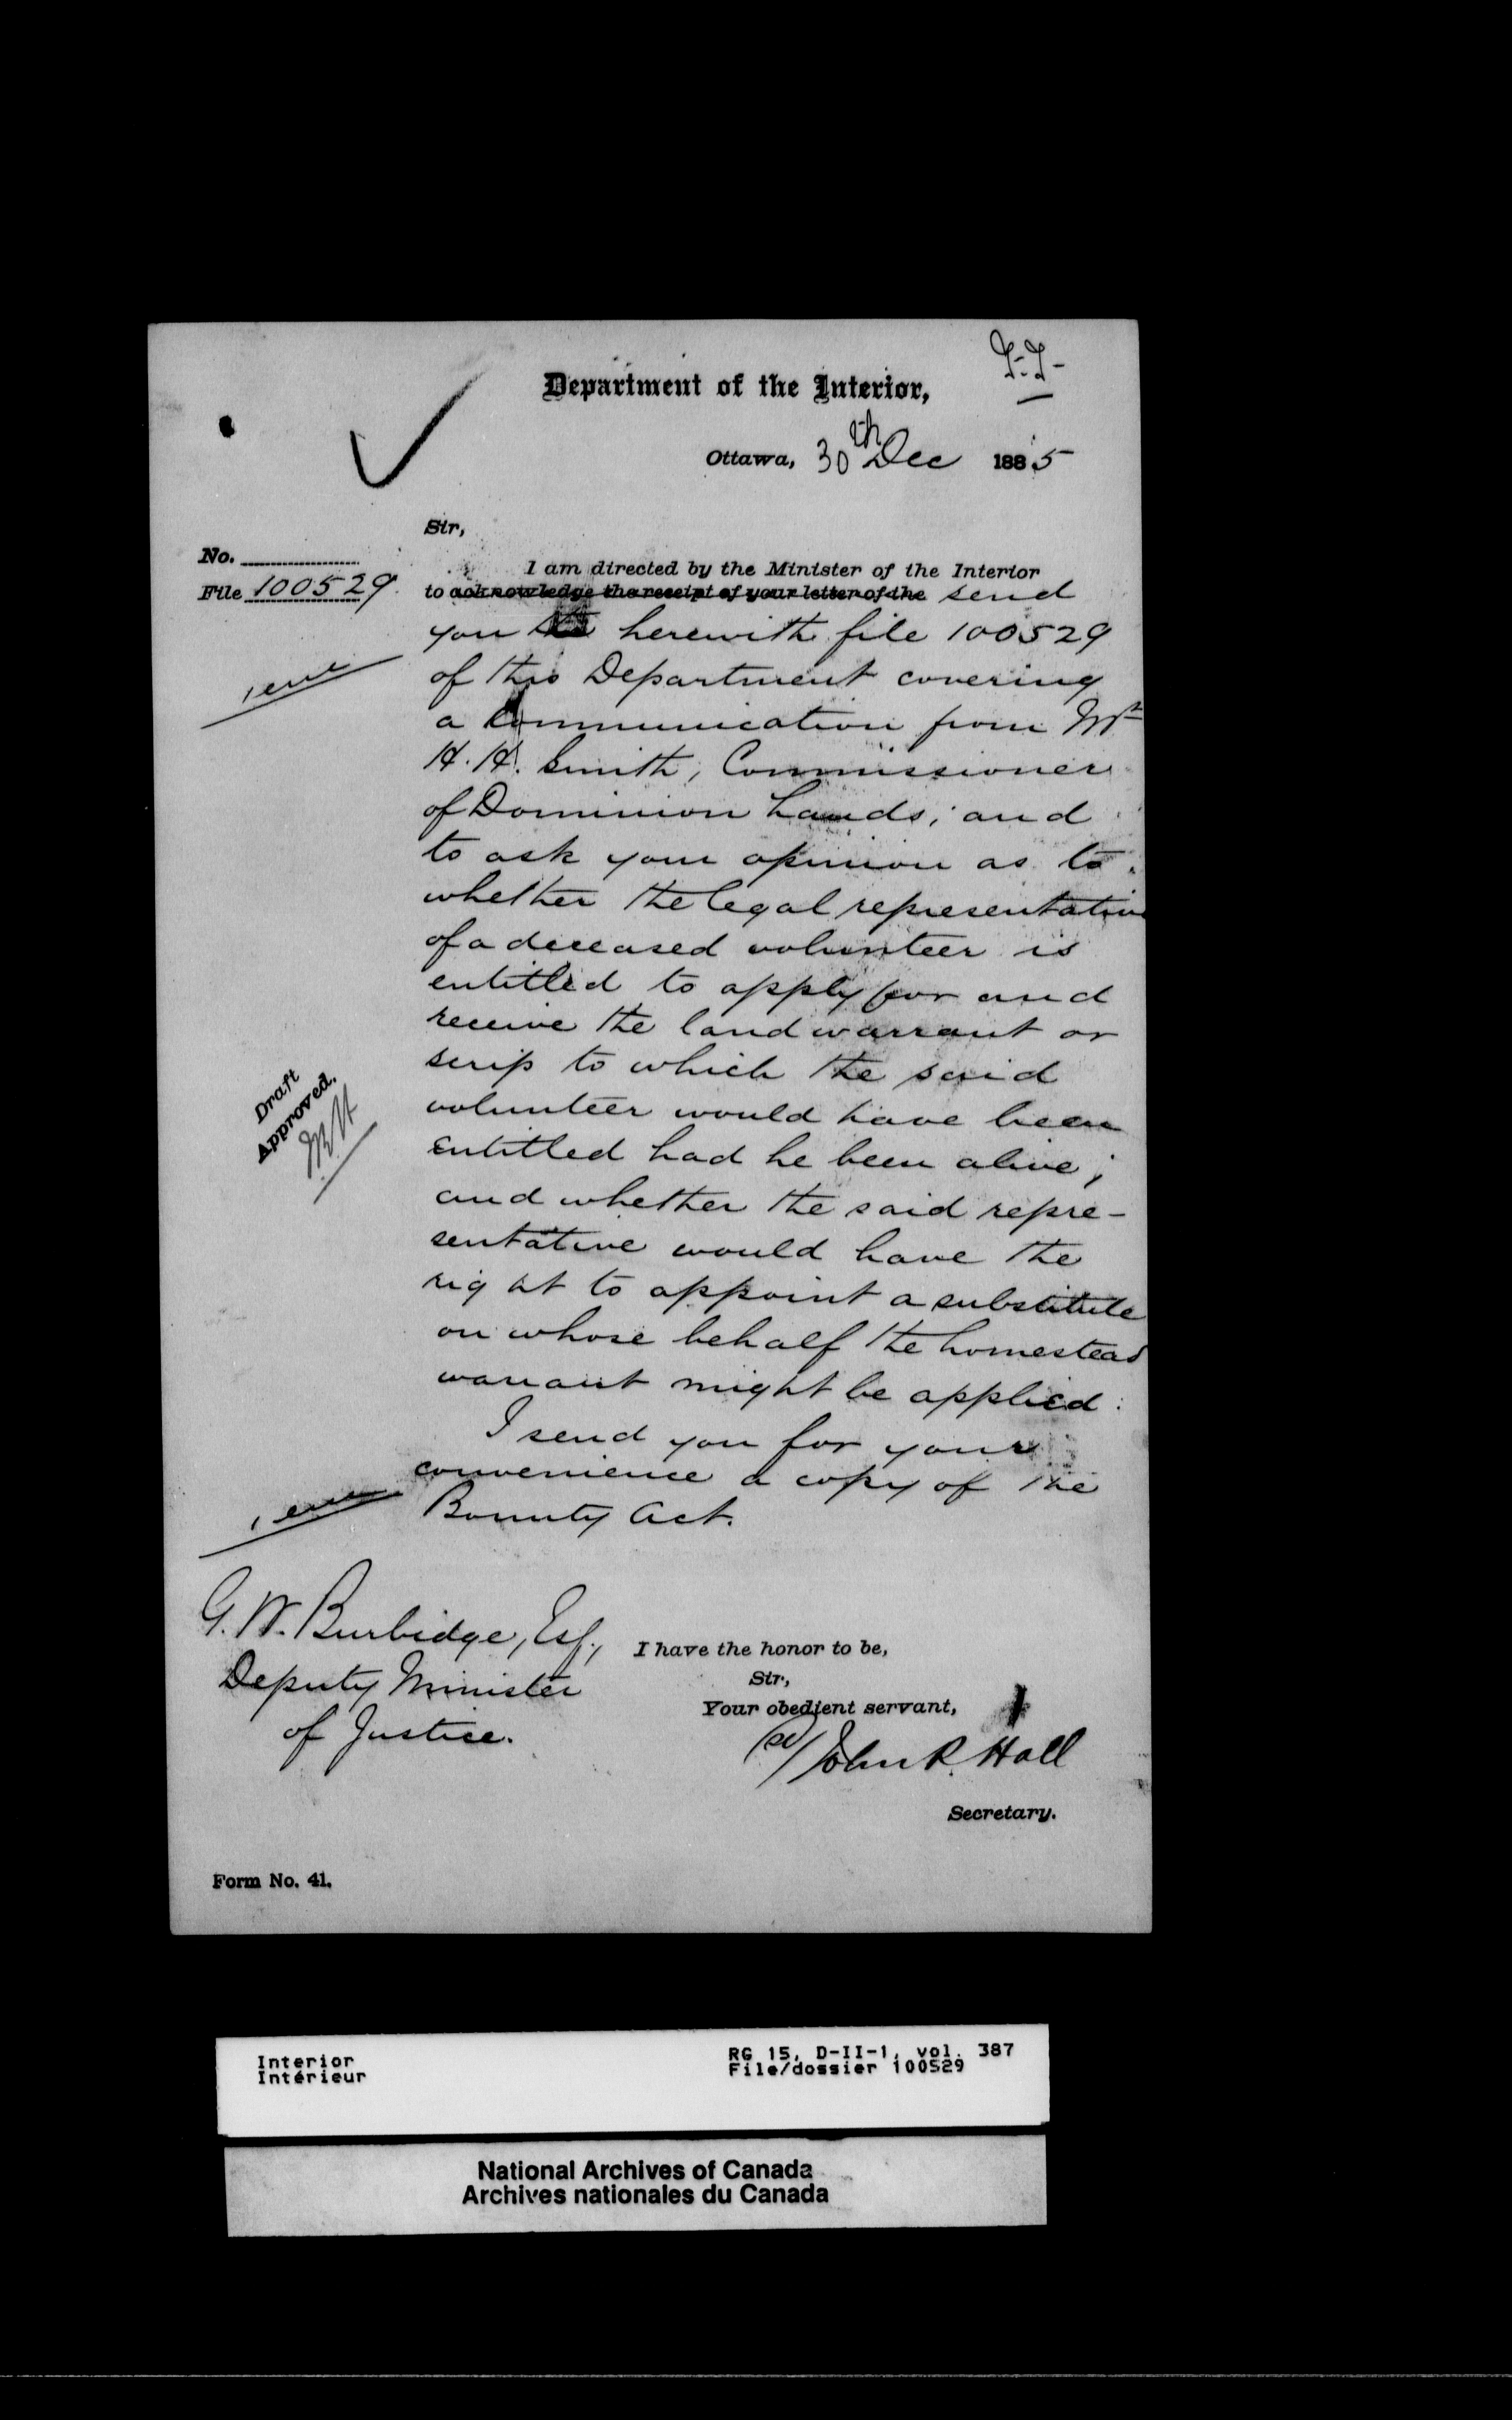 Department of the Interior,
Ottawa, 30th Dec 1885
Sir,
No.
File 100529.
I am directed by the Minister of the Interior
to acknowledge the receipt of your letter of the send
you herewith file 100529
of this Department covering
a Communication from Mr
H. H. Smith, Commissioner
of Dominion Lands; and
to ask your opinion as to
whether the legal representative
of a deceased volunteer is
entitled to apply for and
receive the land warrant or
scrip to which the said
volunteer would have been
entitled had he been alive;
and whether the said repre-
sentative would have the
right to appoint a substitute
on whose behalf the homestead
warrant might be applied.
I send you for your
convenience a copy of the
Bounty Act.
Draft
Approved.
G. W. Burbidge, Esq.,
Deputy Minister
of Justice.
I have the honor to be,
Sir,
Your obedient servant,
John R. Hall
Secretary.
Form No. 41.
Interior
Intérieur
RG 15, D-II-1, vol. 387
File/dossier 100529
National Archives of Canada
Archives nationales du Canada